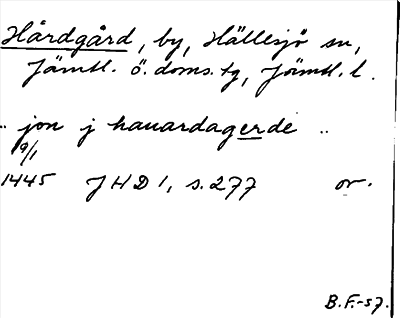 Hårdgård, by, Hällesjö sn,
Jämtl. ö. doms. tg, Jämtl. l.
.. jon j hauardagerde ..
9/1
1445 JHD 1, s. 277 or.
B.F.-57.